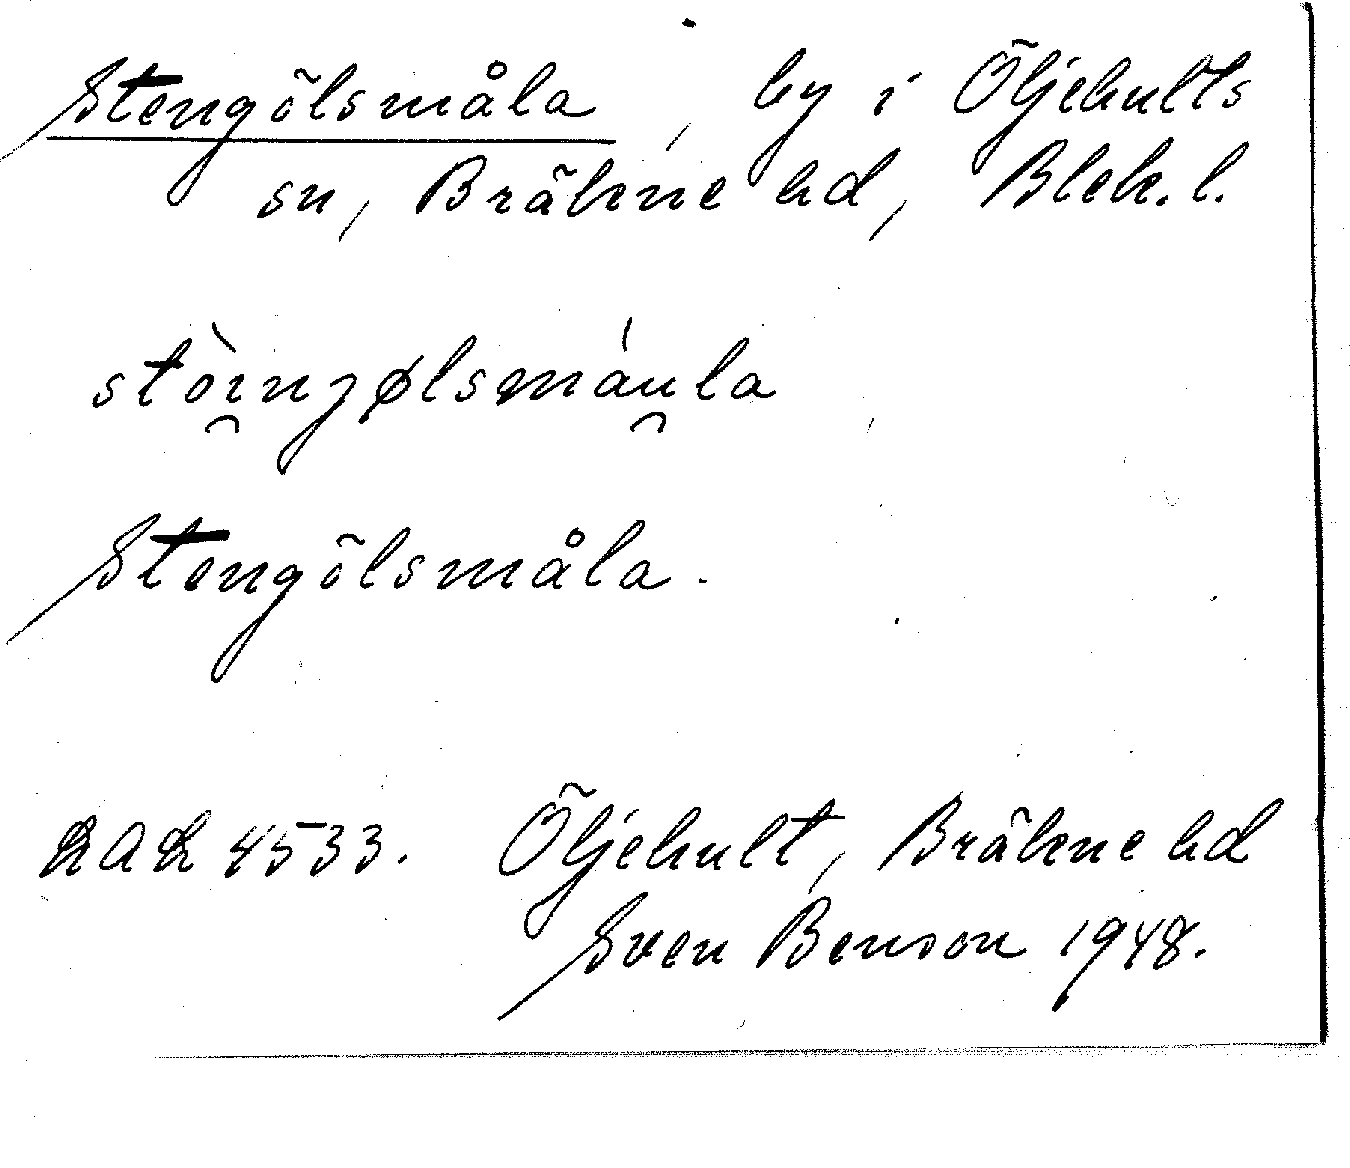 Stengölsmåla, by i Öljehults
sn, Bräkne hd, Blek. l.
stòi̯nɡølsmáu̯la
Stengölsmåla.
LAL 4533. Öljehult, Bräkne hd
Sven Benson 1948.